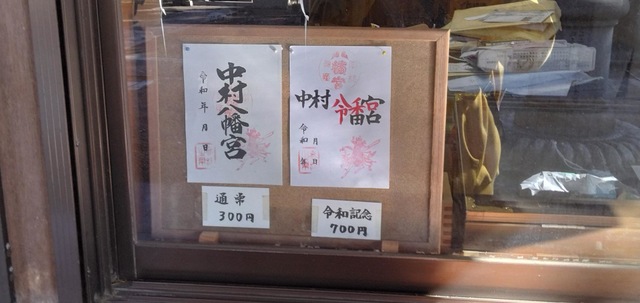 中村八幡宮
令和 年 月 日
通常
300円
中村
八幡宮
令和 年 月 日
令和記念
700円